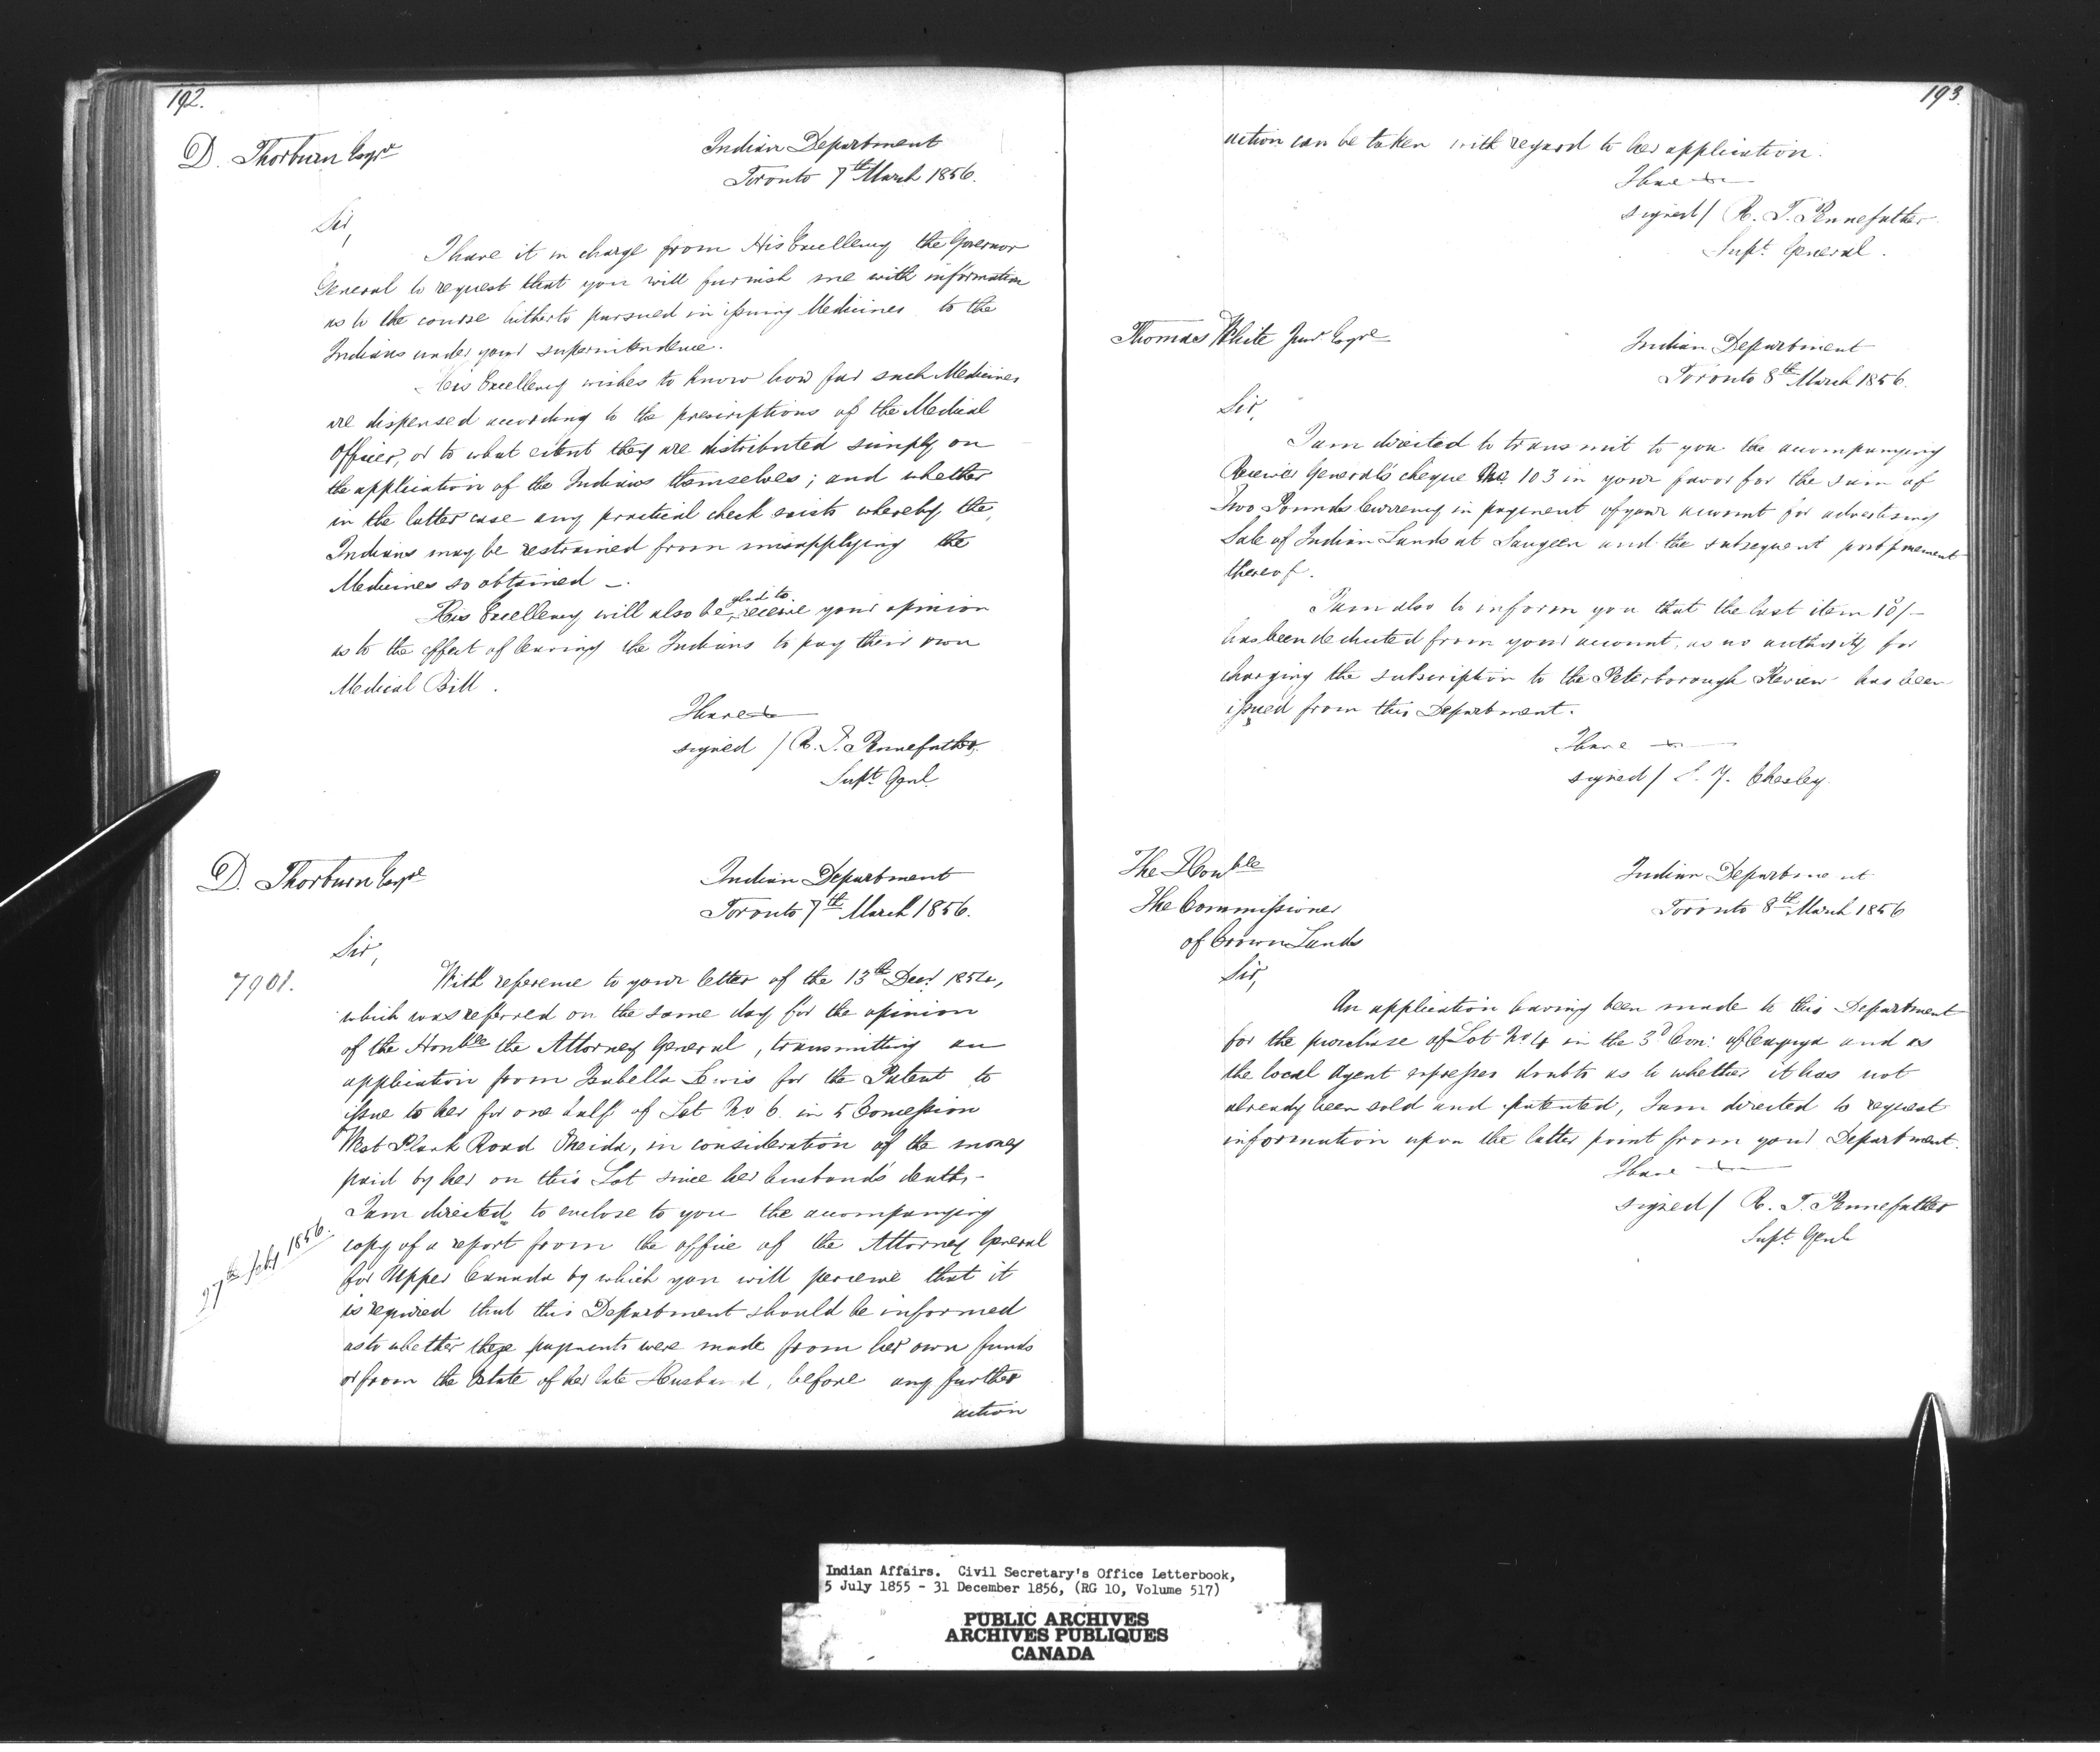 192.
D. Thorburn Esqre
Indian Department
Toronto 7th March 1856.
Sir,
I have it in charge from His Excellency the Governor
General to request that you will furnish me with information
as to the course hitherto pursued in issuing Medicines to the
Indians under your superintendence.
His Excellency wishes to know how far such Medicines
are dispensed according to the prescriptions of the Medical
Officer, or to what extent they are distributed simply on
the application of the Indians themselves; and whether
in the latter case any practical check exists whereby the
Indians may be restrained from misapplying the
Medicines so obtained –.
His Excellency will also be glad to receive your opinion
as to the effect of leaving the Indians to pay their own
Medical Bill.
I have &c
signed / R. T. Pennefather,
Supt. Genl.
D. Thorburn Esqre
Indian Department
Toronto 7th March 1856.
Sir,
7901.
With reference to your letter of the 13th Decr 1854,
which was referred on the same day for the opinion
of the Honble the Attorney General, transmitting an
application from Isabella Lewis for the Patent to
issue to her for one half of Lot No 6. in 5 Concession
West Plank Road Oneida, in consideration of the money
paid by her on this Lot since her husband's death, –
I am directed to enclose to you the accompanying
27th Feby 1856.
copy of a report from the office of the Attorney General
for Upper Canada by which you will perceive that it
is required that this Department should be informed
as to whether these payments were made from her own funds
or from the Estate of her late Husband, before any further
action
193
action can be taken with regard to her application.
I have &c
signed / R. T. Pennefather
Supt. General.
Thomas White Junr Esqre
Indian Department
Toronto 8th March 1856.
Sir,
I am directed to transmit to you the accompanying
Receiver General's cheque No 103 in your favor for the sum of
Two Pounds Currency in payment of your account for advertising
Sale of Indian Lands at Saugeen and the subsequent postponement
thereof.
I am also to inform you that the last item 10/–
has been deducted from your account, as no authority for
charging the subscription to the Peterborough Review has been
issued from this Department.
I have &c
signed / S. Y. Chesley.
The Honble
The Commissioner
of Crown Lands
Indian Department
Toronto 8th March 1856
Sir,
An application having been made to this Department
for the purchase of Lot No 4 in the 3d Con: of Cayuga and as
the local Agent expresses doubts as to whether it has not
already been sold and patented, I am directed to request
information upon the latter point from your Department.
I have &c
signed / R. T. Pennefather
Supt. Genl
Indian Affairs. Civil Secretary's Office Letterbook,
5 July 1855 - 31 December 1856, (RG 10, Volume 517)
PUBLIC ARCHIVES
ARCHIVES PUBLIQUES
CANADA